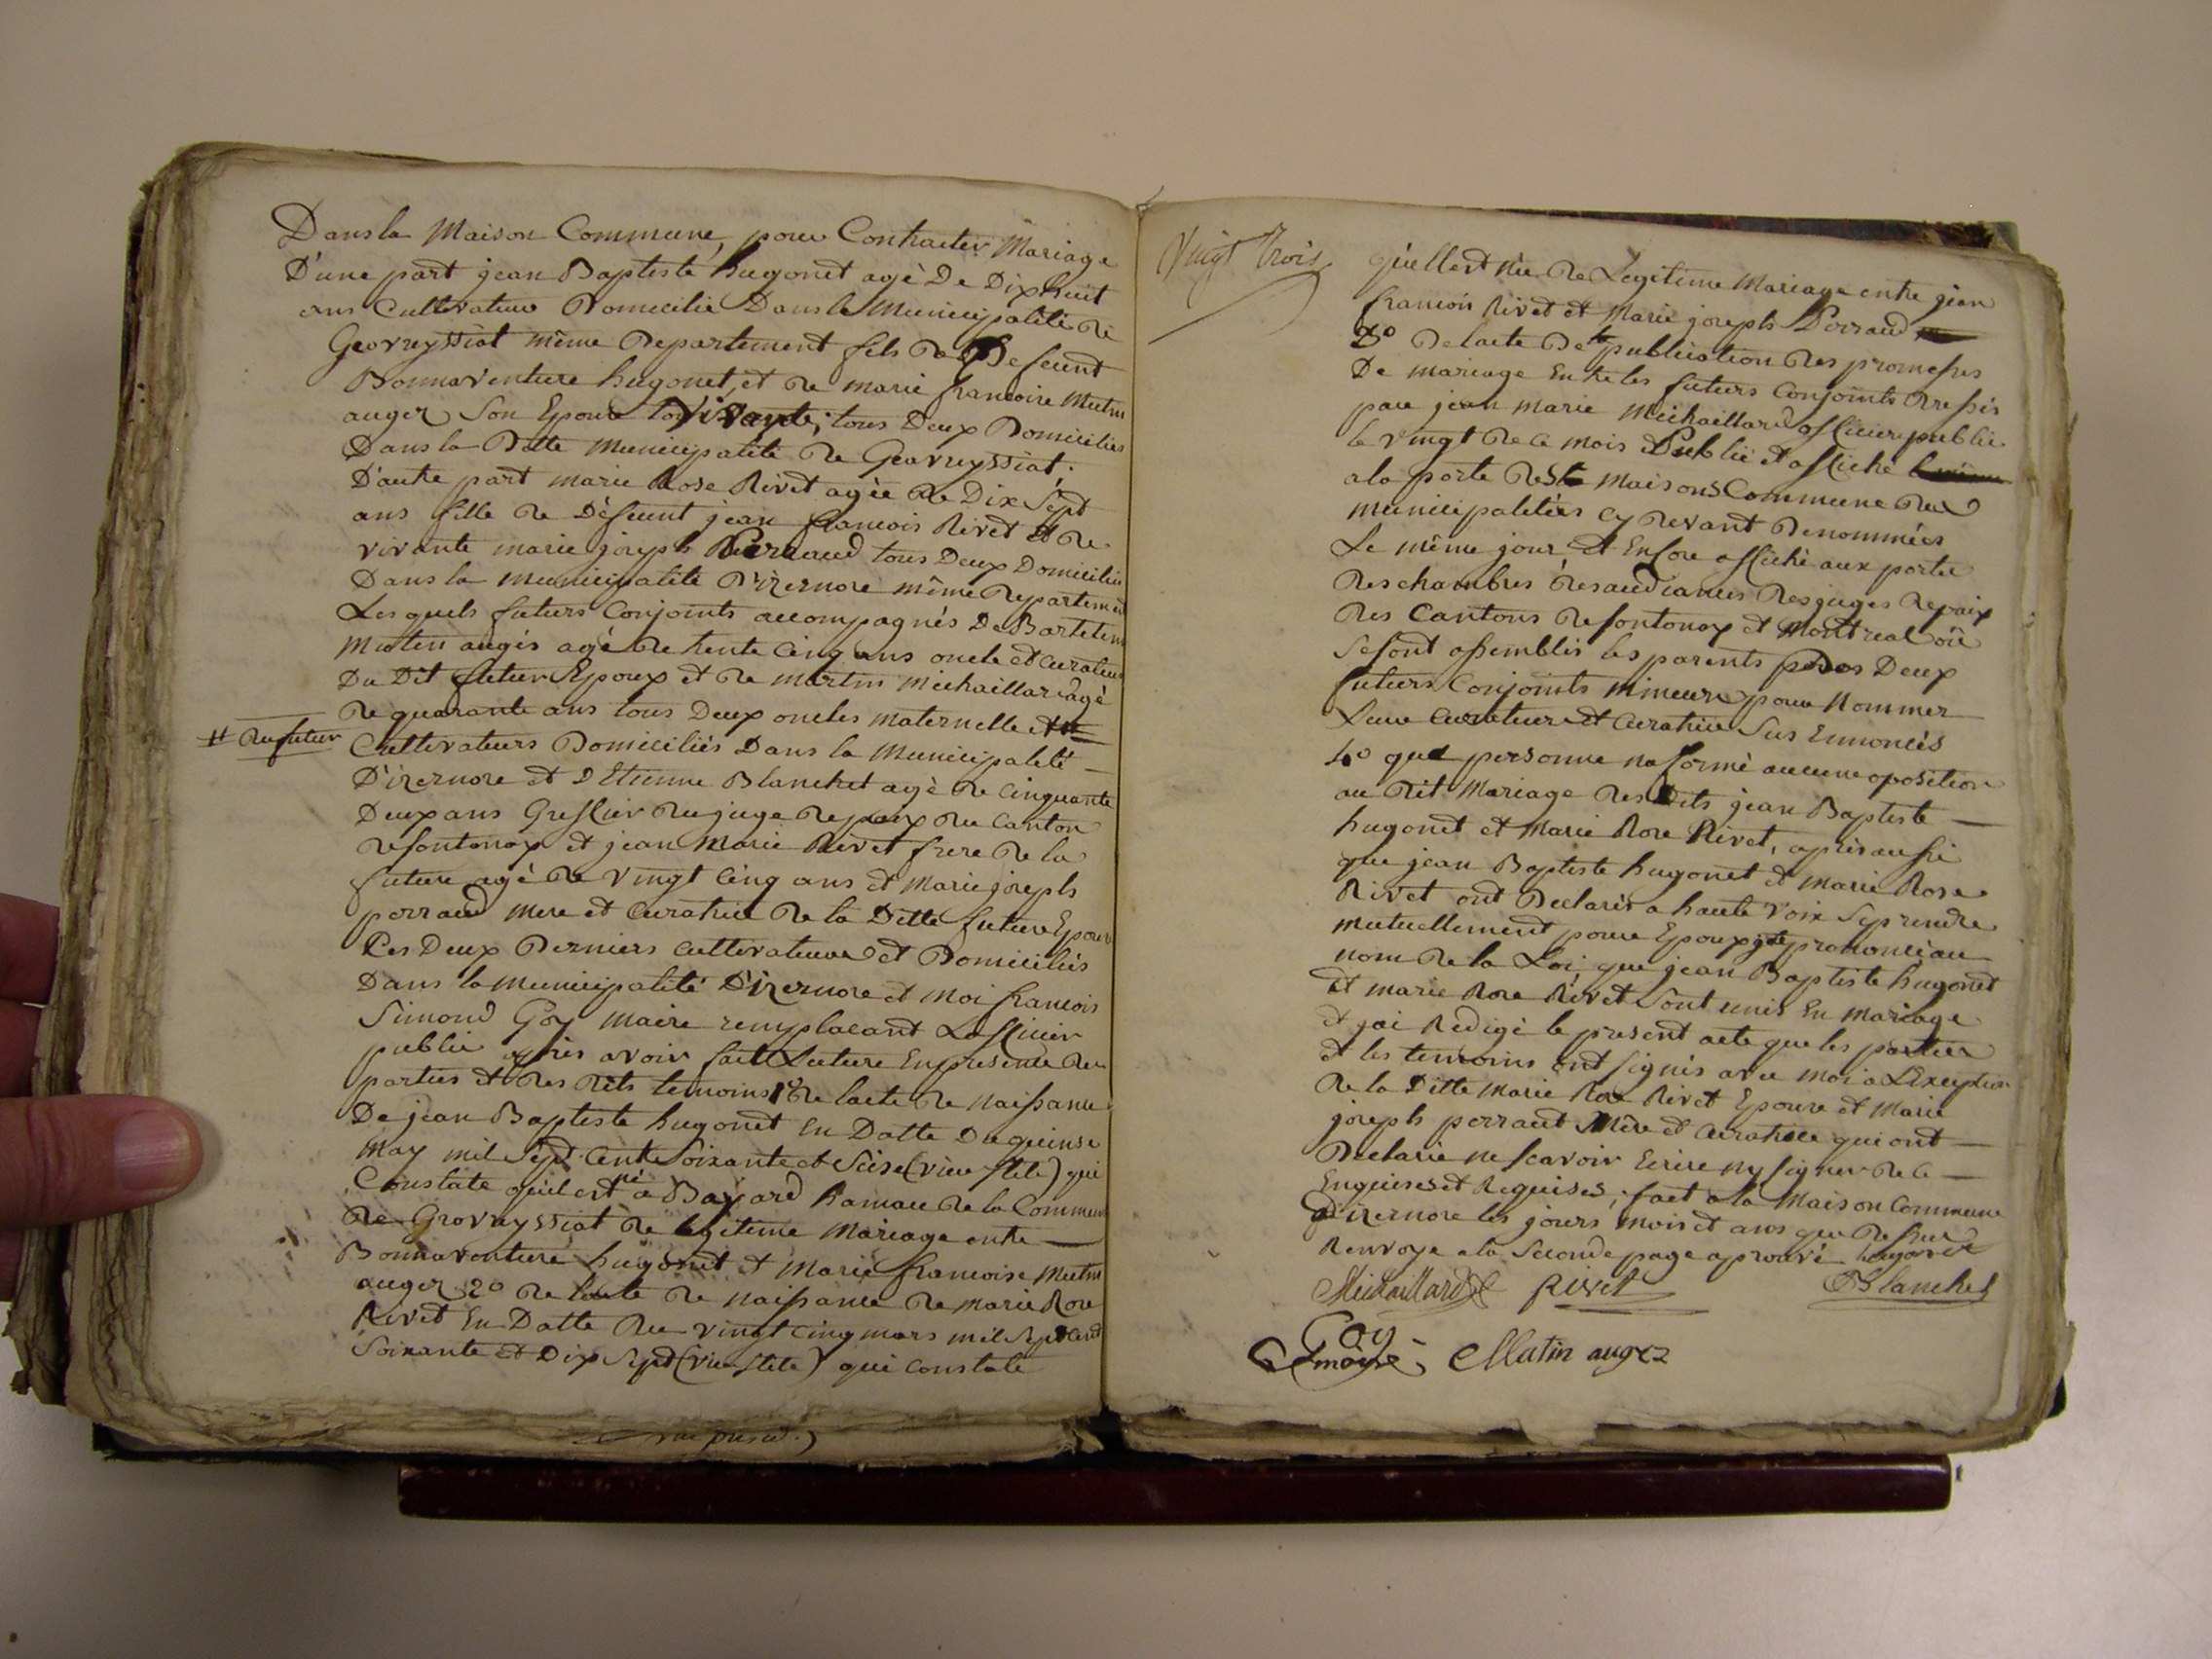 Dans la Maison Commune, pour Contracter Mariage
D'une part jean Baptiste hugonet agé De Dix huit
ans Cultivateur Domicilié Dans la Municipalité de
Geovreyssiat même Departement fils de Defeunt
Bonnaventure hugonet, et de marie francoise Mutin
auger Son Epouse vivante; tous Deux Domiciliés
Dans la Ditte Municipalité de Geovreyssiat.
D'autre part marie Rose Rivet agée de Dix Sept
ans fille de Défeunt jean francois Rivet et de
vivante marie joseph Perraud tous Deux Domiciliés
Dans la Municipalité D'izernore même Departement
Lesquels futurs Conjoints accompagnés De Bartelemi
Mutin augér agé de trente Cinq ans oncle et curateur
Du Dit futur Epoux et de martin michaillard agé
de quarante ans tous Deux oncles maternelle et
# du futur
Cultivateurs Domiciliés Dans la Municipalité
D'izernore et D Etienne Blanchet agé de Cinquante
Deux ans Greffier du juge de paix du Canton
de fontenoy et jean Marie Rivet frere de la
future agé de vingt Cinq ans et Marie joseph
perraud mere et Curatrice de la Ditte future Epouse
Les Deux Derniers cultivateurs et Domiciliés
Dans la Municipalité D'izernore et Moi francois
Simond Goy maire remplacant Lofficier
public après avoir fait Lecture En presence des
parties et des dits temoins 1º de lacte de naissance
De jean Baptiste hugonet en Datte Du quinse
May mil Sept Cent Soixante et Seise (vieu stile) qui
Constate qu'il est né a Bayard hamau de la Commune
de Grovreyssiat de legitime Mariage entre
Bonnaventure hugonet et Marie francoise Mutin
auger 2º de lacte de naissance de marie Rose
Rivet En Datte du vingt cinq mars mil Sept Cent
Soixante et Dix Sept (vieu stile) qui constate
Vingt trois
qu'ellest née de Legitime Mariage entre jean
francois Rivet et Marie joseph Perraud
3º de lacte de la publication des promesses
De mariage Entre les futurs Conjoints dressés
par jean marie Michaillard officier public
le vingt de ce mois Publié et affiché
a la porte des Maisons Commune des
municipalités cy devant Denommées
Le même jour et Enfore affiché aux portes
des chambres des audiances des juges de paix
des Cantons de fontenoy et Montreal où
se sont assemblés les parents des Deux
futurs Conjoints mineurs pour Nommer
Leur Curateur et Curatrice Sus Ennoncés
4º que personne na formé aucune oposition
au dit Mariage des Dits jean Baptiste
hugonet et Marie Rose Rivet, après aussi
que jean Baptiste hugonet et Marie Rose
Rivet ont Declarés a haute voix Se prendre
mutuellement pour Epoux jai prononcé au
nom de la Loi, que jean Baptiste hugonet
et marie Rose Rivet Sont unis En mariage
et jai Redigé le present acte que les parties
et les temoins ont signés avec moi a Lexeption
de la Ditte marie Rose Rivet Epouse et Marie
joseph perraut Mère et Curatrice qui ont
Declaré ne scavoir Ecrire ny signer de ce
Enquises et Requises; fait a la Maison Commune
D'izernore les jours mois et ans que dessus
Renvoye a la Seconde page aprouvé hugonet
Michaillard Rivet Blanchet
Goy
maire Mutin auger